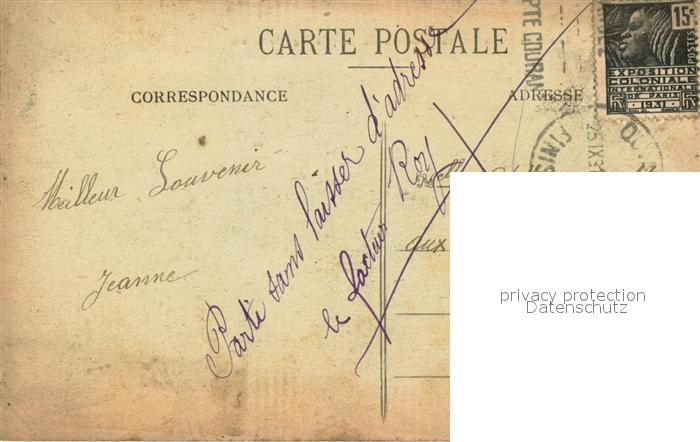 CARTE POSTALE
CORRESPONDANCE
ADRESSE
15c
EXPOSITION
COLONIALE
INTERNATIONALE
DE PARIS
1931
Meilleur Souvenir
Jeanne
Parti sans laisser d'adresse
le facteur Roy
Melle
aux
privacy protection
Datenschutz